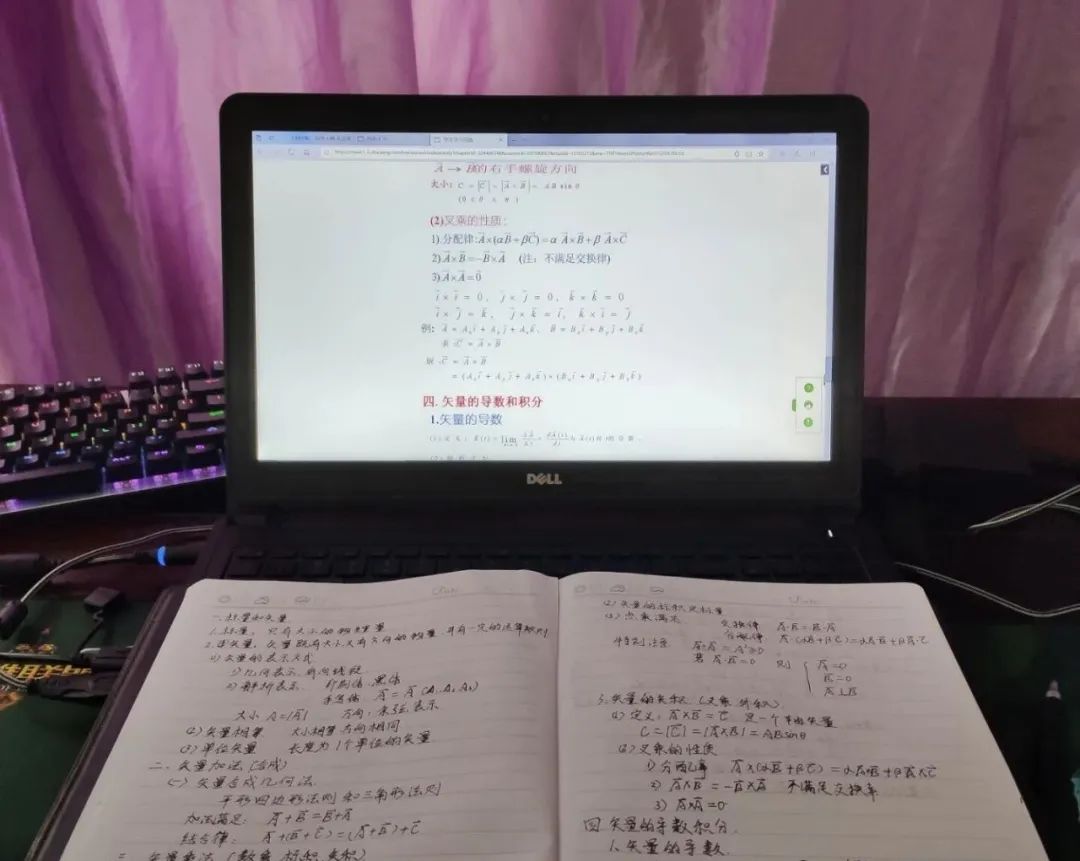 A → B的右手螺旋方向
大小: C = |C⃗| = |A⃗ × B⃗| = AB sin θ
(2)叉乘的性质:
1).分配律:A⃗×(αB⃗+βC⃗)=α A⃗×B⃗+β A⃗×C⃗
2).A⃗×B⃗=-B⃗×A⃗ (注: 不满足交换律)
3).A⃗×A⃗=0⃗
i⃗ × i⃗ = 0, j⃗ × j⃗ = 0, k⃗ × k⃗ = 0
i⃗ × j⃗ = k⃗, j⃗ × k⃗ = i⃗, k⃗ × i⃗ = j⃗
例: A⃗ = Aₓi⃗ + Aᵧj⃗ + A_zk⃗, B⃗ = Bₓi⃗ + Bᵧj⃗ + B_zk⃗
求:C⃗ = A⃗ × B⃗
解:C⃗ = A⃗ × B⃗
= (Aₓi⃗ + Aᵧj⃗ + A_zk⃗) × (Bₓi⃗ + Bᵧj⃗ + B_zk⃗)
四. 矢量的导数和积分
1.矢量的导数
DELL
一.标量和矢量
1.标量: 只有大小的物理量
2.矢量: 矢量既有大小又有方向的物理量,并有一定的运算规则
(1)矢量的表示方式
1)几何表示:有向线段
2)解析表示: 印刷体:黑体
手写体
大小 A=|A⃗| 方向: 表示
(2)矢量相等 大小相等方向相同
(3)单位矢量 长度为1个单位的矢量
二、矢量加法(合成)
(一)矢量合成几何法
平行四边形法则和三角形法则
加法满足: A⃗+B⃗=B⃗+A⃗
结合律: A⃗+(B⃗+C⃗)=(A⃗+B⃗)+C⃗
三 矢量乘法(数乘 标积 矢积)
(2)矢量的标积是标量
(3)点乘满足 交换律 A⃗·B⃗=B⃗·A⃗
分配律 A⃗·(αB⃗+βC⃗)=αA⃗·B⃗+βA⃗·C⃗
特别注意 A⃗·A⃗=A²≥0
若 A⃗·B⃗=0 则 { A⃗=0
B⃗=0
A⃗⊥B⃗
3.矢量的矢积(叉乘,外积)
(1)定义: A⃗×B⃗=C⃗ 是一个矢量
C=|C⃗|=|A⃗×B⃗|=ABsinθ
(2)叉乘的性质
1)分配率 A⃗×(αB⃗+βC⃗)=αA⃗×B⃗+βA⃗×C⃗
2) A⃗×B⃗=-B⃗×A⃗ 不满足交换率
3) A⃗×A⃗=0
四.矢量的导数积分
1、矢量的导数